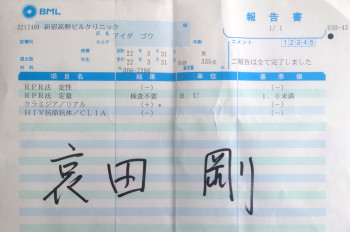 BML
報告書
3212401 新宿高野ビルクリニック
1/ 1
030-43
アイダ ゴウ
コメント 12345
22年 3月31
22年 3月31
男
35歳
ご報告は全て完了しました
006-5786
項目名 結果 単位 基準値
RPR法 定性 (−) (−)
RPR法 定量 検査不要 R.U 1.0未満
クラミジア/リアル (+) * (−)
HIV抗原抗体/CLIA (−) (−)
哀田 剛